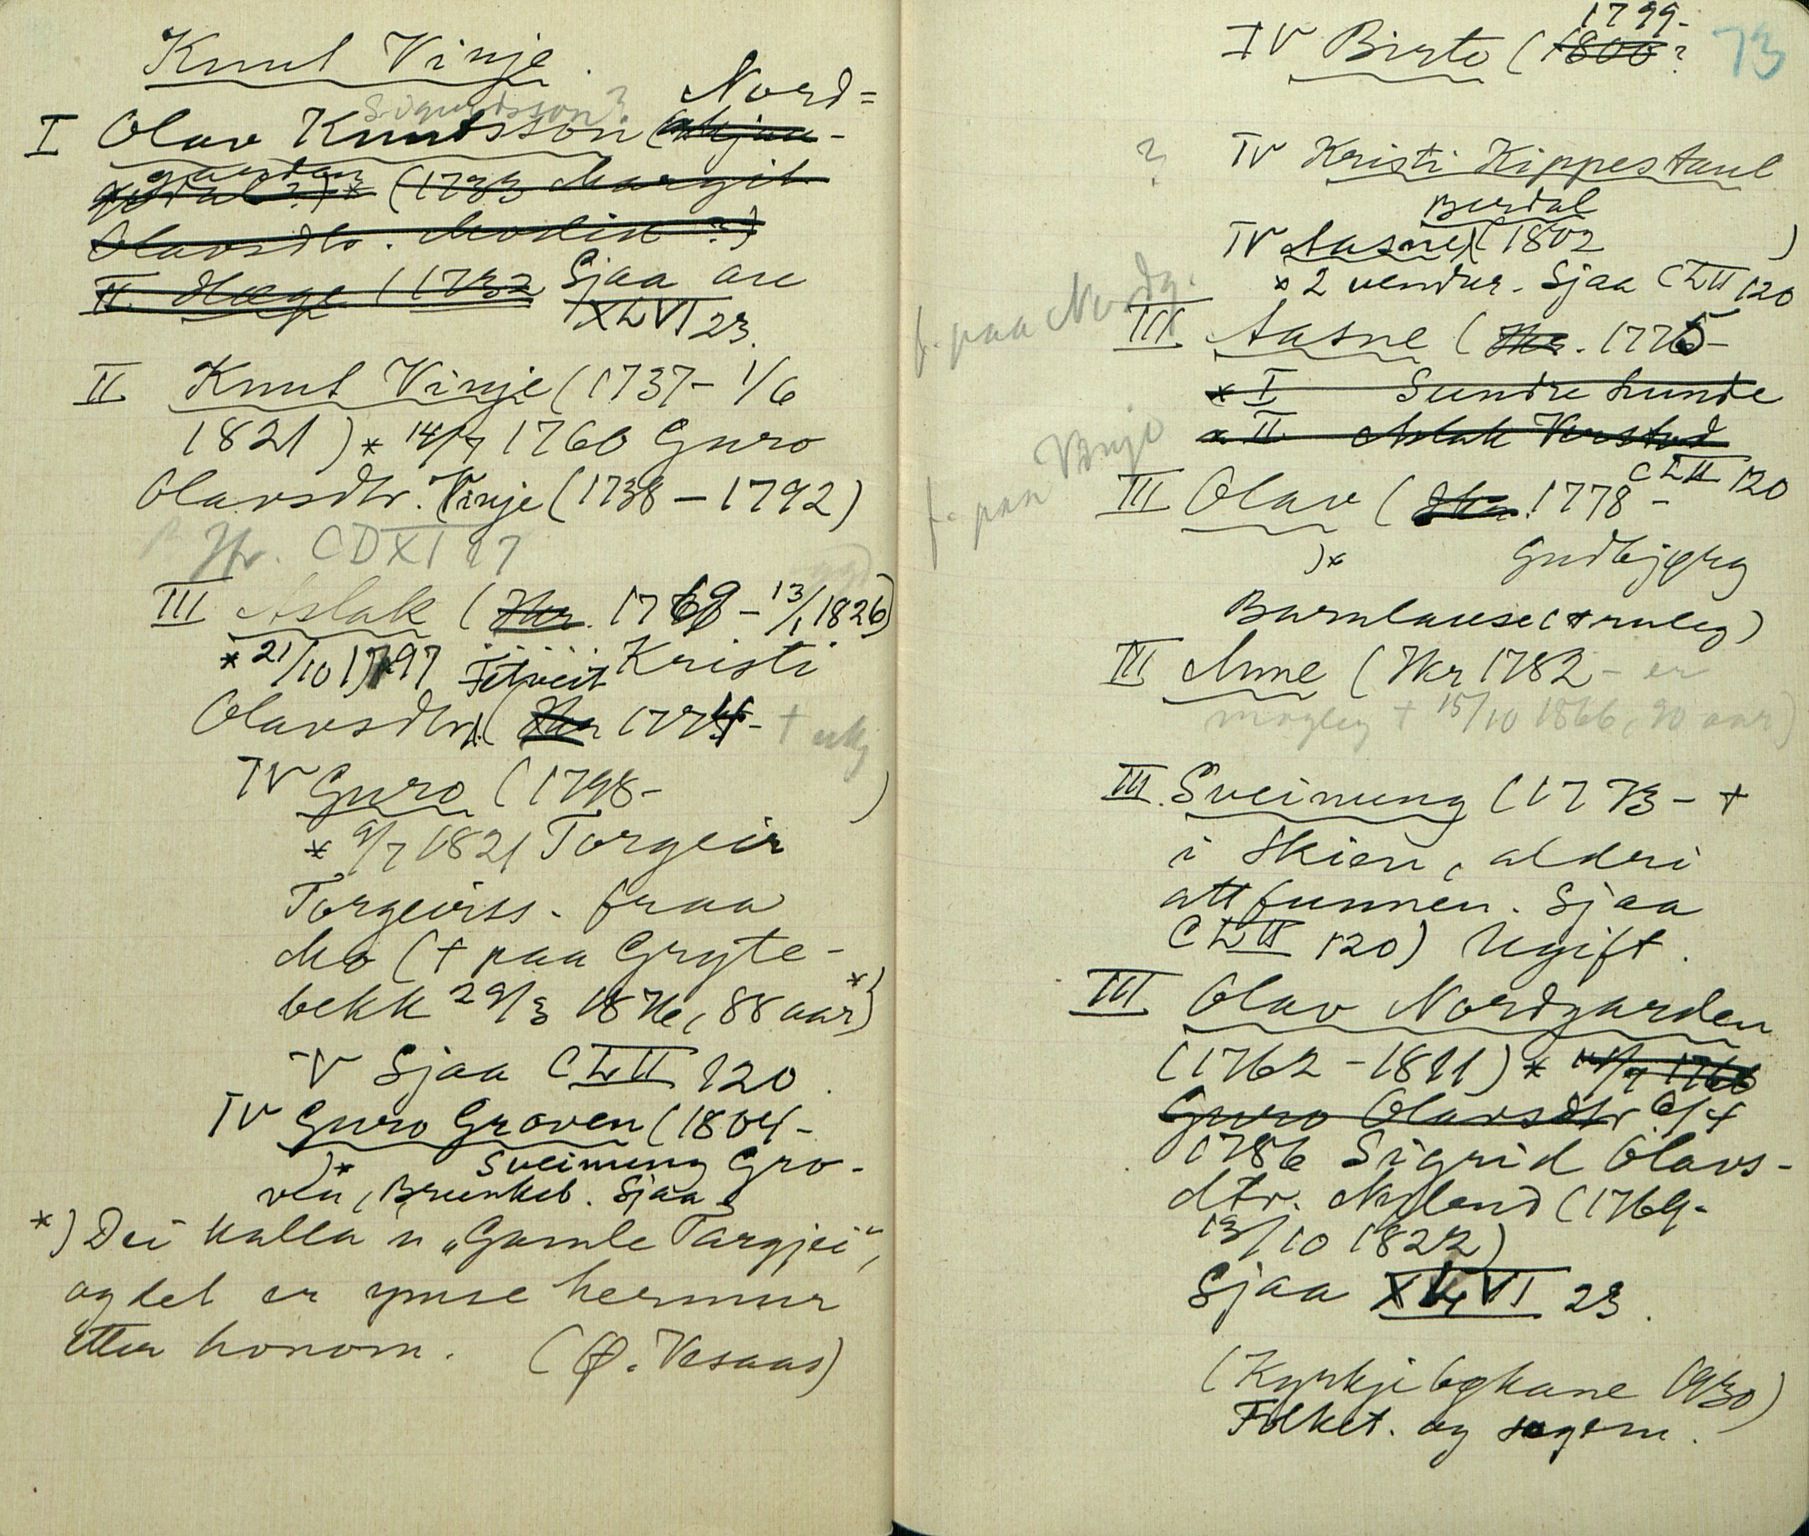 Knut Vinje.
Sigurdsson?
Nord=
I Olav Knutsson
garden
(1733 Margit
Olavsdtr.
II Hæge (1732 Sjaa are
XLVI 23.
II Knut Vinje (1737- 1/6
1821) * 14/9 1760 Guro
Olavsdtr. Vinje (1738 - 1792)
Hr. CDXI 17
III Aslak (Hkr. 1769 - 13/1 1826)
* 21/10 1797 Felveit Kristi
Olavsdtr. (Hkr 1774- +
IV Guro (1798- )
* 9/7 1821 Torgeir
Torgeirss. fraa
Mo (+ paa Gryte-
bekk 29/3 1876, 88 aar*)
V Sjaa CLII 120.
IV Guro Groven (1804-
)* Sveinung Gro-
ven, Brunkeb. Sjaa
*) Dei kalla n "Gamle Targjei",
og det er ymse hermur
etter honom. (Ø. Vesaas)
73
1799-
IV Birte (1800?
? IV Kristi Kippestaul
Berdal
IV Aasne (1802 )
* 2 vendur. Sjaa CLII 120
f. paa Nordg.
III Aasne (Hkr. 1775-
* I Sundre Lunde
* II Aslak
CLII 120
f. paa Vinje
III Olav (Hkr. 1778 -
)* Gudbjørg
Barnlause (truleg)
III Anne (Hkr 1782 - er
mogleg + 15/10 1866, 90 aar)
III Sveinung (1773 - +
i Skien, aldri
attfunnen. Sjaa
CLII 120) Ugift.
III Olav Nordgarden
(1762 - 1811) * 14/9 1760
Guro Olavsdtr 6/4
1786 Sigrid Olavs-
dtr. Myland (1769-
13/10 1822)
Sjaa XLVI 23.
(Kyrkjebøkane 1930)
Folket. og sogem.